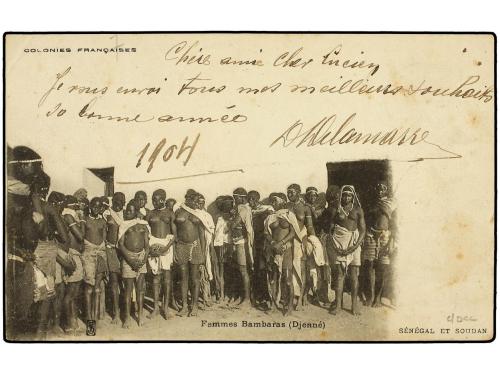 COLONIES FRANÇAISES
Chère amie Cher Lucien
Je vous envoi tous mes meilleurs souhaits
de bonne année
Delamarre
1904
Femmes Bambaras (Djenné)
SÉNÉGAL ET SOUDAN